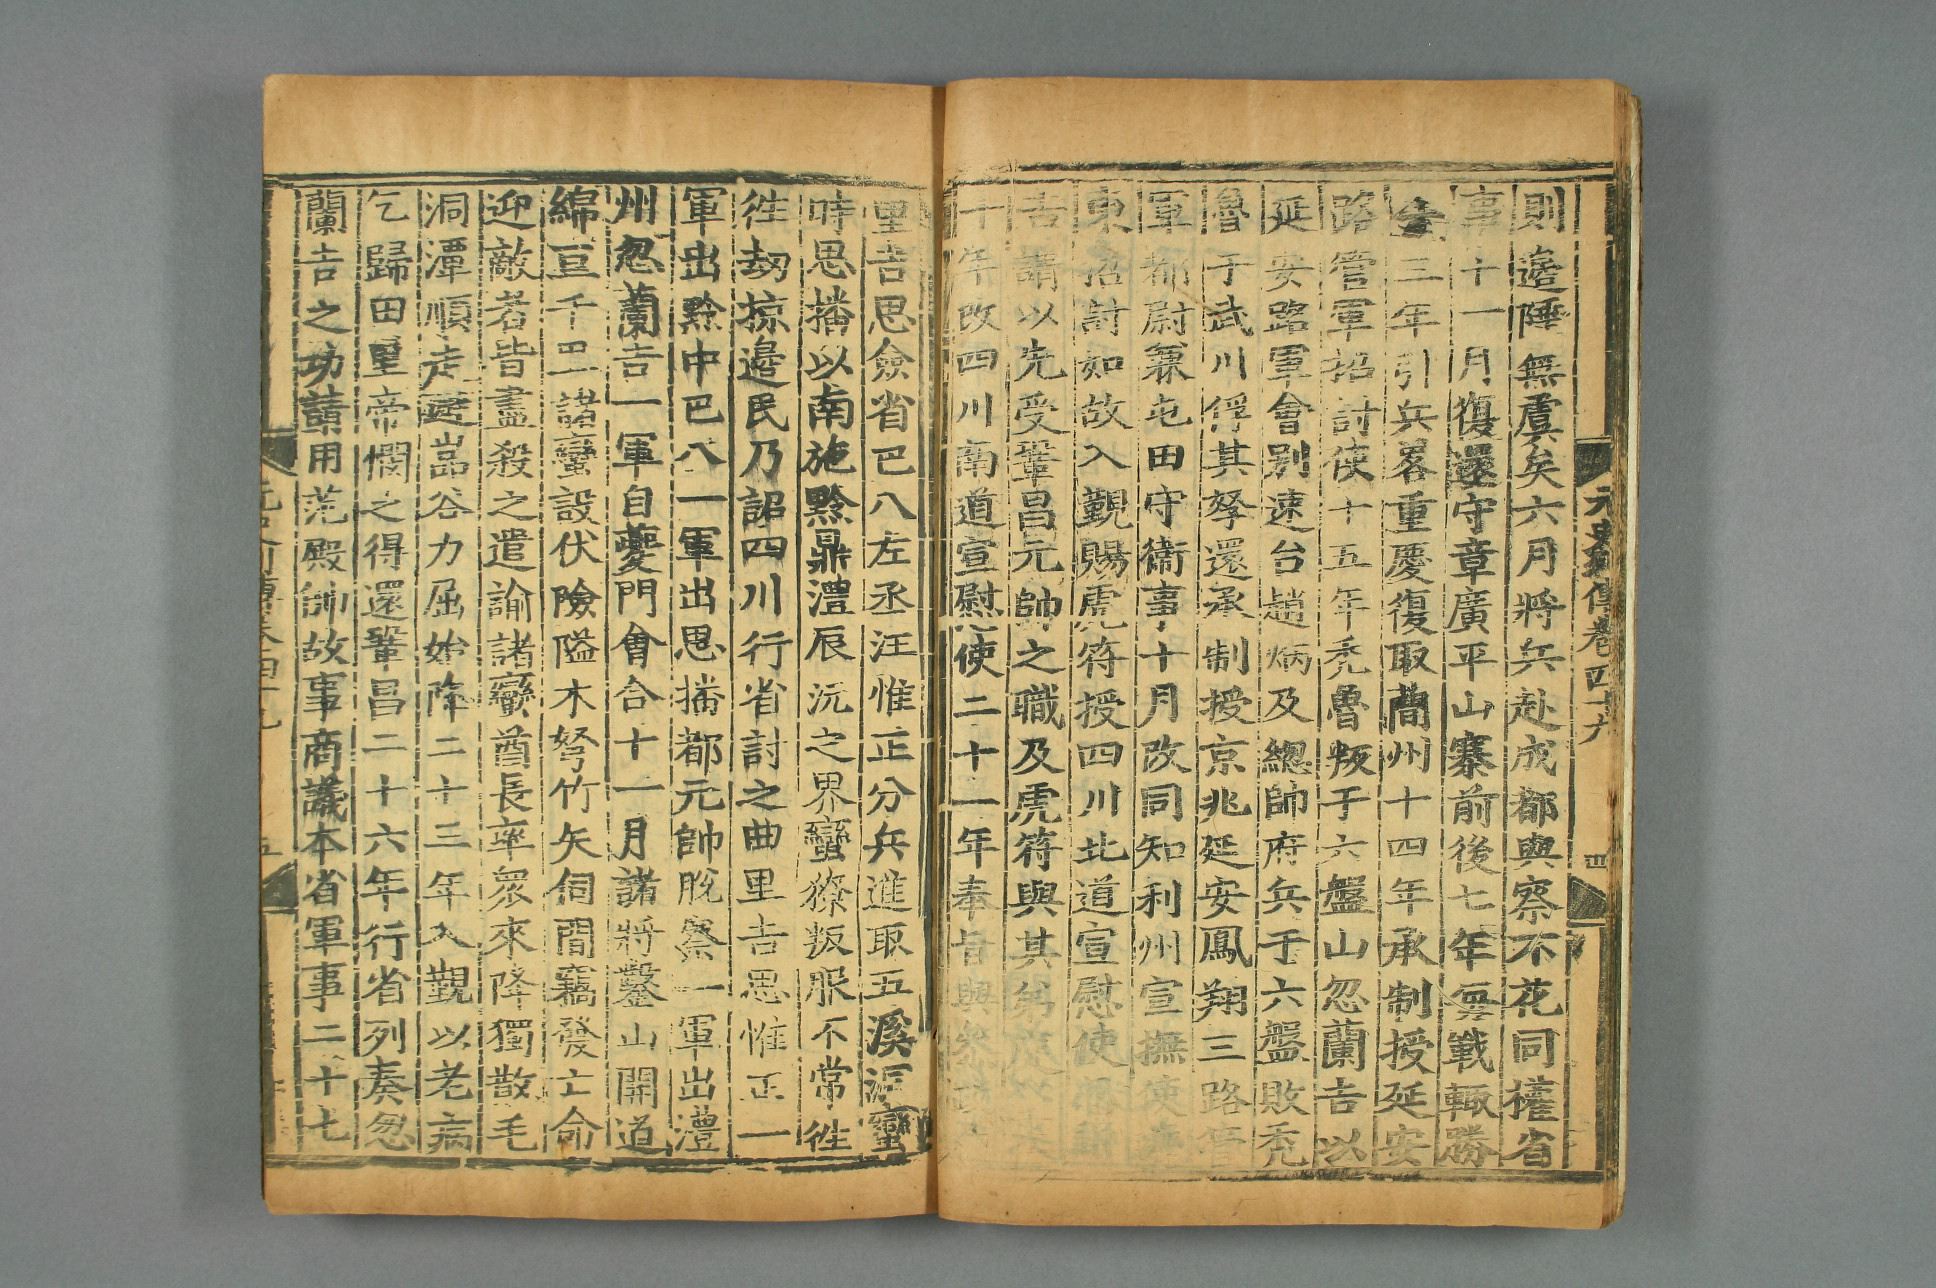 元史列傳卷四十九
四
則邊陲無虞矣六月將兵赴成都與察不花同權省
事十一月復還守章廣平山寨前後七年每戰輒勝
三年引兵畧重慶復取蕳州十四年承制授延安
路管軍招討使十五年禿魯叛于六盤山忽蘭吉以
延安路軍會別速台趙炳及總帥府兵于六盤敗禿
魯于武川俘其孥還承制授京兆延安鳳翔三路管
軍都尉兼屯田守衞事十月改同知利州宣撫使
東招討如故入覲賜虎符授四川北道宣慰使
吉請以先受鞏昌元帥之職及虎符與其弟
十年改四川南道宣慰使二十一年奉旨與參政
里吉思僉省巴八左丞汪惟正分兵進取五溪洞蠻
時思播以南施黔鼎澧辰沅之界蠻獠叛服不常徃
徃刼掠邊民乃詔四川行省討之曲里吉思惟正一
軍出黔中巴八一軍出思播都元帥脫察一軍出澧
州忽蘭吉一軍自夔門會合十一月諸將鑿山開道
綿亘千里諸蠻設伏險隘木弩竹矢伺間竊發亡命
迎敵者皆盡殺之遣諭諸蠻酋長率衆來降獨散毛
洞潭順走避嵓谷力屈始降二十三年入覲以老病
乞歸田里帝憫之得還鞏昌二十六年行省列奏忽
蘭吉之功請用范殿帥故事商議本省軍事二十七
五